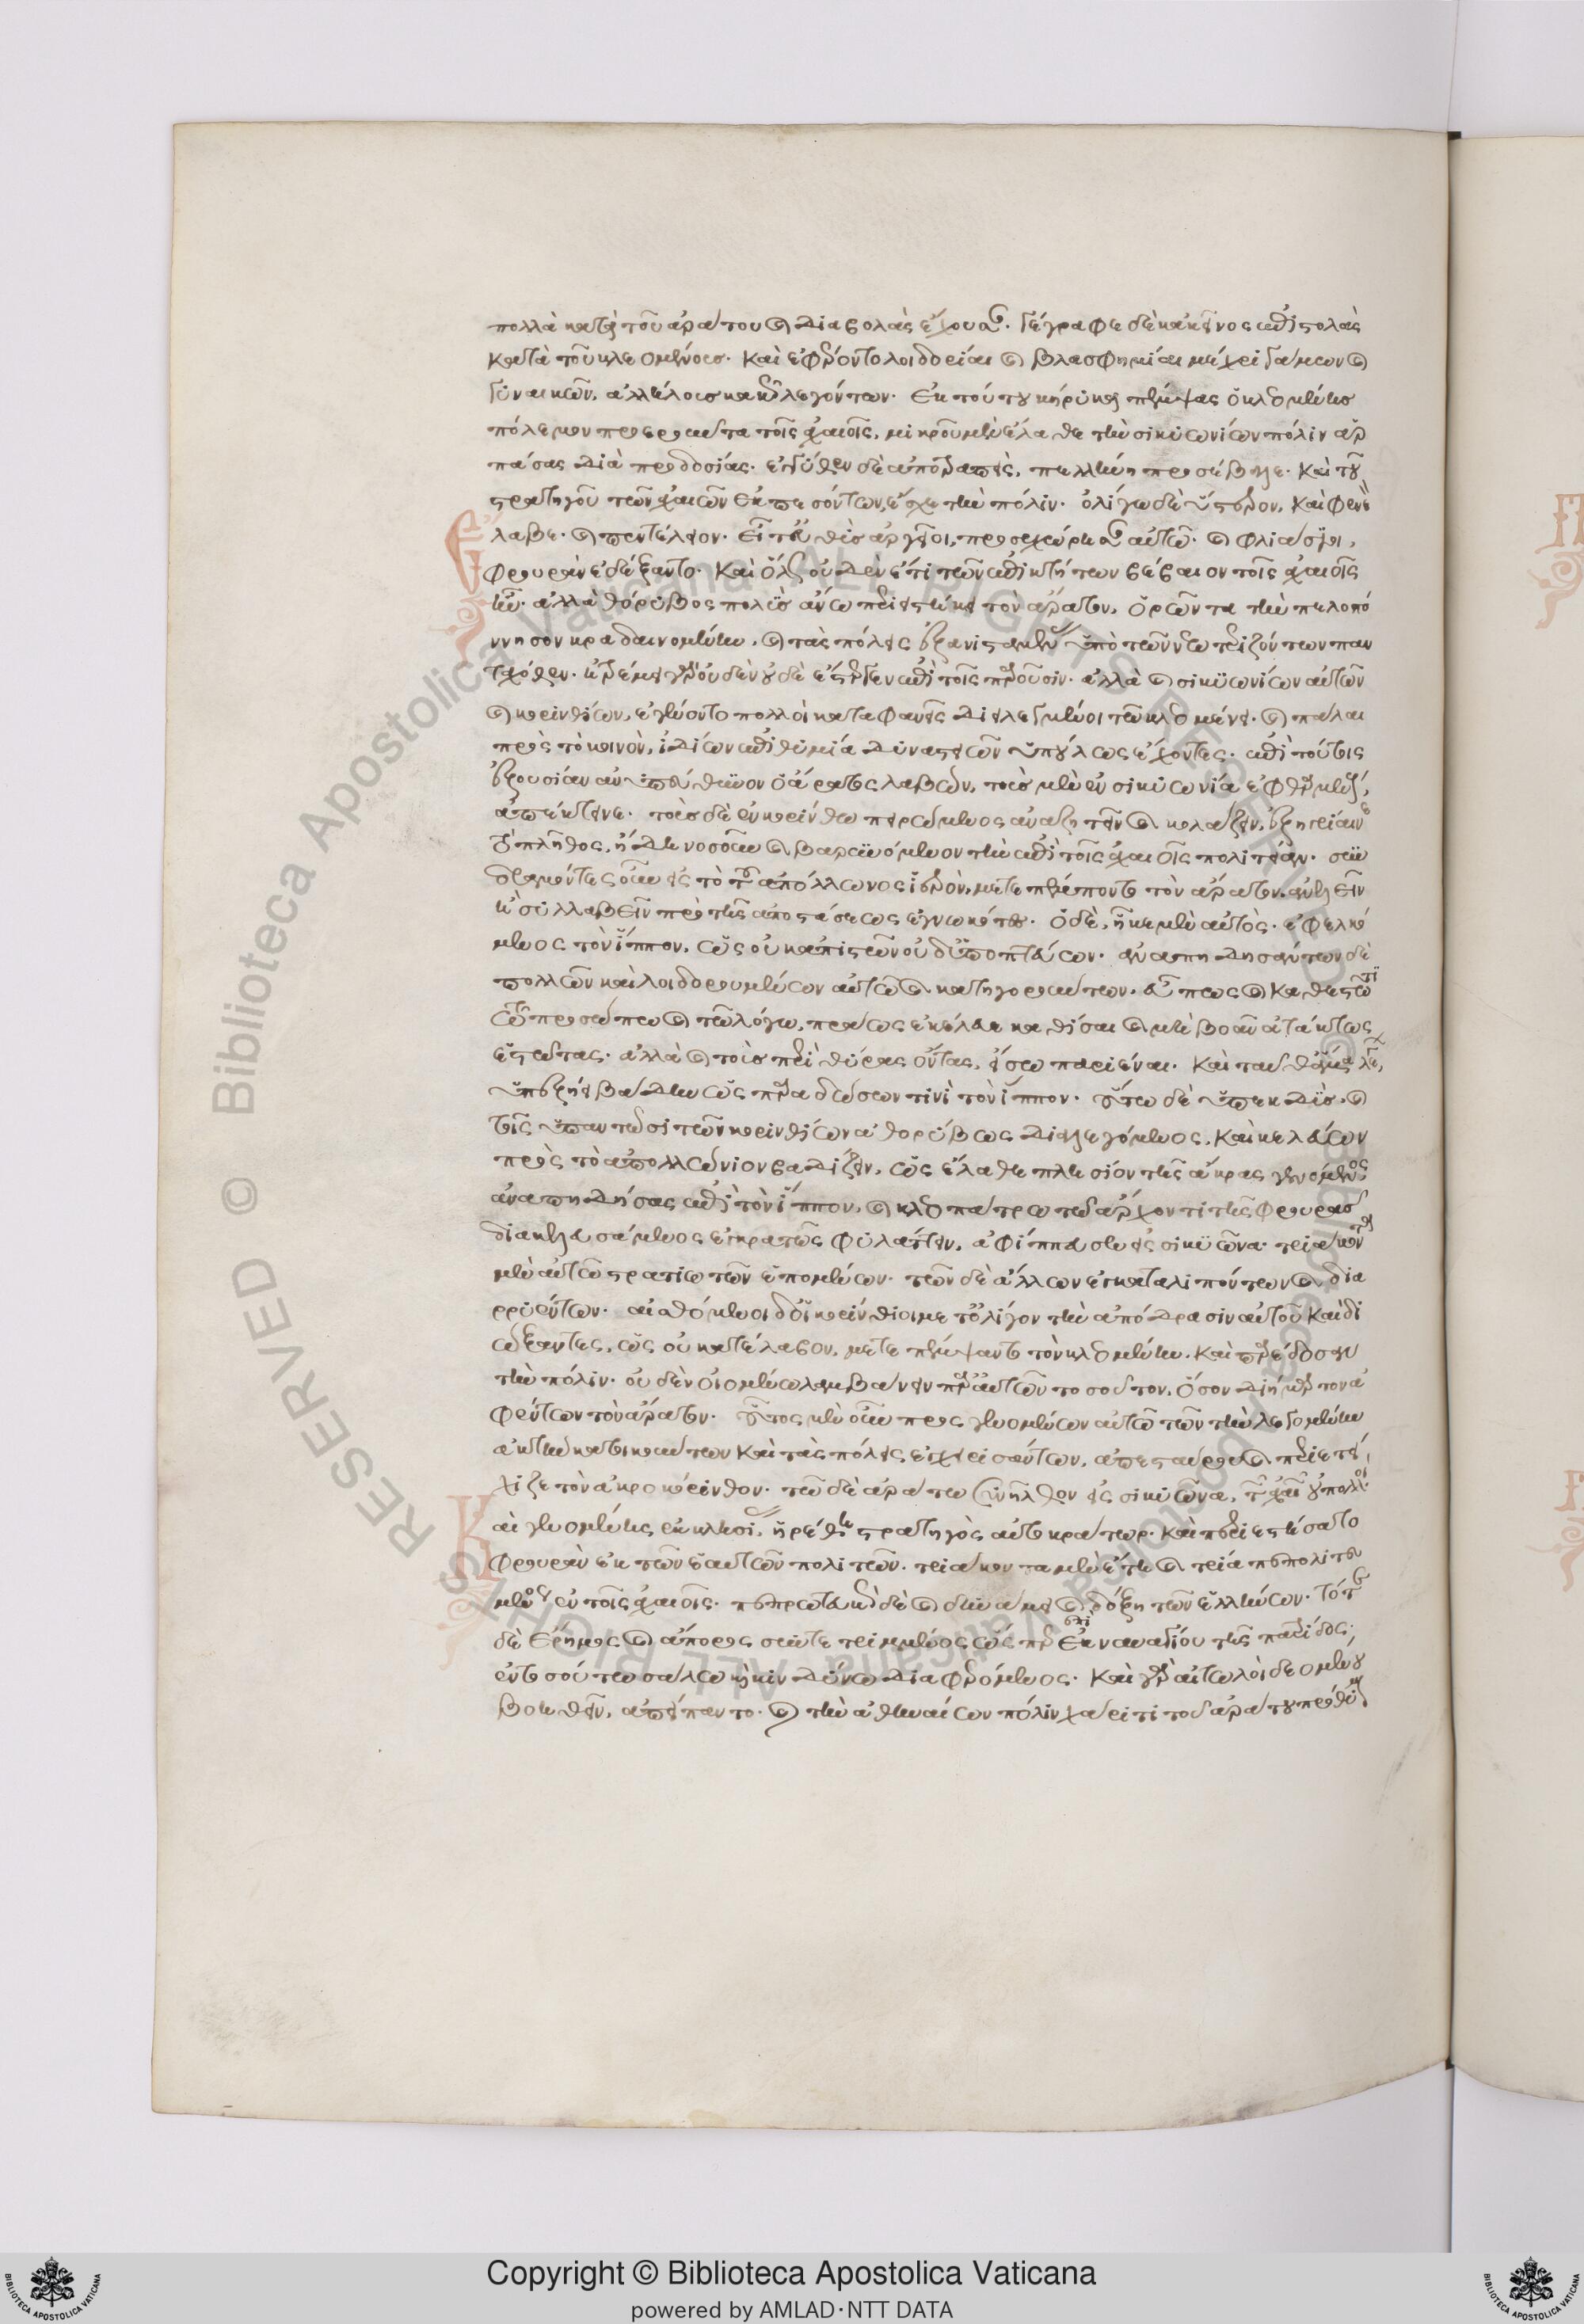 πολλὰ κατὰ τοῦ ἀράτου καὶ διαβολὰς ἔχουσαν. γέγραφε δὲ κἀκεῖνος ἐπιστολὰς
κατὰ τοῦ κλεομένους. καὶ ἐφέροντο λοιδορίαι καὶ βλασφημίαι μέχρι γάμων καὶ
γυναικῶν, ἀλλήλους κακῶς λεγόντων. ἐκ τούτου κήρυκα πέμψας ὁ κλεομένης
πόλεμον προεροῦντα τοῖς ἀχαιοῖς, μικροῦ μὲν ἔλαθε τὴν σικυωνίων πόλιν ἁρ
πάσας διὰ προδοσίας. ἐγγύθεν δὲ ἀποτραπεὶς, πελλήνῃ προσέβαλε. καὶ τοῦ
στρατηγοῦ τῶν ἀχαιῶν ἐκπεσόντων, ἔσχε τὴν πόλιν. ὀλίγῳ δὲ ὕστερον, καὶ φενεὸν
λαβε. καὶ πεντέλειον. εἶτ' εὐθὺς ἀργεῖοι, προσεχώρησαν αὐτῷ. καὶ φλιάσιοι,
φρουρὰν ἐδέξαντο. καὶ ὅλως οὐδὲν ἔτι τῶν ἐπικτήτων βέβαιον τοῖς ἀχαιοῖς
ἦν. ἀλλὰ θόρυβος πολὺς ἄνω περιειστήκει τὸν ἄρατον, ὁρῶντα τὴν πελοπό
ννησον κραδαινομένην, καὶ τὰς πόλεις ἐξανισταμένας ὑπὸ τῶν νεωτεριζόντων παν
ταχόθεν. ἠρέμει γὰρ οὐδὲν οὐδὲ ἔστεργεν ἐπὶ τοῖς παροῦσιν. ἀλλὰ καὶ σικυωνίων αὐτῶν
καὶ κορινθίων, ἐγένοντο πολλοὶ καταφανεῖς διειλεγμένοι τῷ κλεομένει. καὶ πάλαι
πρὸς τὸ κοινὸν, ἰδίων ἐπιθυμίᾳ δυναστειῶν ὑπούλως ἔχοντες. ἐπὶ τούτοις
ἐξουσίαν ἀνυπεύθυνον ὁ ἄρατος λαβὼν, τοὺς μὲν ἐν σικυωνίᾳ ἐφθαρμένους,
ἀπέκτεινε. τοὺς δὲ ἐν κορίνθῳ πειρώμενος ἀναζητεῖν καὶ κολάζειν, ἐξηγρίαινε
τὸ πλῆθος, ἤδη νοσοῦν καὶ βαρυνόμενον τὴν ἐπὶ τοῖς ἀχαιοῖς πολιτείαν. συν
δραμόντες οὖν εἰς τὸ τοῦ ἀπόλλωνος ἱερὸν, μετεπέμποντο τὸν ἄρατον, ἀνελεῖν
ἢ συλλαβεῖν πρὸ τῆς ἀποστάσεως ἐγνωκότες. ὁ δὲ, ἧκε μὲν αὐτὸς. ἐφελκό
μενος τὸν ἵππον, ὡς οὐκ ἀπιστῶν οὐδ' ὑποπτεύων. ἀναπηδησάντων δὲ
πολλῶν καὶ λοιδορουμένων αὐτῷ καὶ κατηγορούντων. εὖ πως καὶ καθεστῶτι
τῷ προσώπῳ καὶ τῷ λόγῳ, πράως ἐκέλευε καθίσαι καὶ μὴ βοᾶν ἀτάκτως
ἑστῶτας. ἀλλὰ καὶ τοὺς περὶ θύρας ὄντας, εἴσω παριέναι. καὶ ταῦθ' ἅμα λέγων,
ὑπεξῄει βάδην ὡς παραδώσων τινὶ τὸν ἵππον. οὕτω δὲ ὑπεκδὺς, καὶ
τοῖς ὑπαντῶσι τῶν κορινθίων ἀθορύβως διαλεγόμενος, καὶ κελεύων
πρὸς τὸ ἀπολλώνιον βαδίζειν, ὡς ἔλαθε πλησίον τῆς ἄκρας γενόμενος
ἀναπηδήσας ἐπὶ τὸν ἵππον, καὶ κλεοπάτρῳ τῷ ἄρχοντι τῆς φρουρᾶς
διακελευσάμενος ἐγκρατῶς φυλάττειν, ἀφίππευσεν εἰς σικυῶνα. τριάκοντα
μὲν αὐτῷ στρατιωτῶν ἑπομένων. τῶν δὲ ἄλλων ἐγκαταλιπόντων καὶ δια
ρρυέντων. αἰσθόμενοι δ' οἱ κορίνθιοι μετ' ὀλίγον τὴν ἀπόδρασιν αὐτοῦ καὶ δι
ώξαντες, ὡς οὐ κατέλαβον, μετεπέμψαντο τὸν κλεομένην. καὶ παρέδοσαν
τὴν πόλιν. οὐδὲν οἰομένῳ λαμβάνειν παρ' αὐτῶν τοσοῦτον, ὅσον διήμαρτον ἀ
φέντων τὸν ἄρατον. οὗτος μὲν οὖν προσγενομένων αὐτῷ τῶν τὴν λεγομένην
ἀκτὴν κατοικούντων καὶ τὰς πόλεις ἐγχειρισάντων, ἀπεσταύρου καὶ περιετεί
χιζε τὸν ἀκροκόρινθον. τῷ δὲ ἀράτῳ συνῆλθον εἰς σικυῶνα, τῶν ἀχαιῶν οὐ πολλοὶ.
αὶ γενομένης ἐκκλησίας, ᾑρέθη στρατηγὸς αὐτοκράτωρ. καὶ περιεστήσατο
φρουρὰν ἐκ τῶν ἑαυτῶν πολιτῶν. τριάκοντα μὲν ἔτη καὶ τρία πεπολιτευ
μένος ἐν τοῖς ἀχαιοῖς. πεπρωτευκὼς δὲ καὶ δυνάμει καὶ δόξῃ τῶν ἑλλήνων. τότε
δὲ ἔρημος καὶ ἄπορος συντετριμμένος ὥσπερ ἐπὶ ναυαγίου τῆς πατρίδος,
ἐν τοσούτῳ σάλῳ καὶ κινδύνῳ διαφερόμενος. καὶ γὰρ αἰτωλοὶ δεομένου
βοηθεῖν, ἀπείπαντο. καὶ τὴν ἀθηναίων πόλιν χάριτι τοῦ ἀράτου πρόθυμον
Copyright © Biblioteca Apostolica Vaticana
powered by AMLAD·NTT DATA